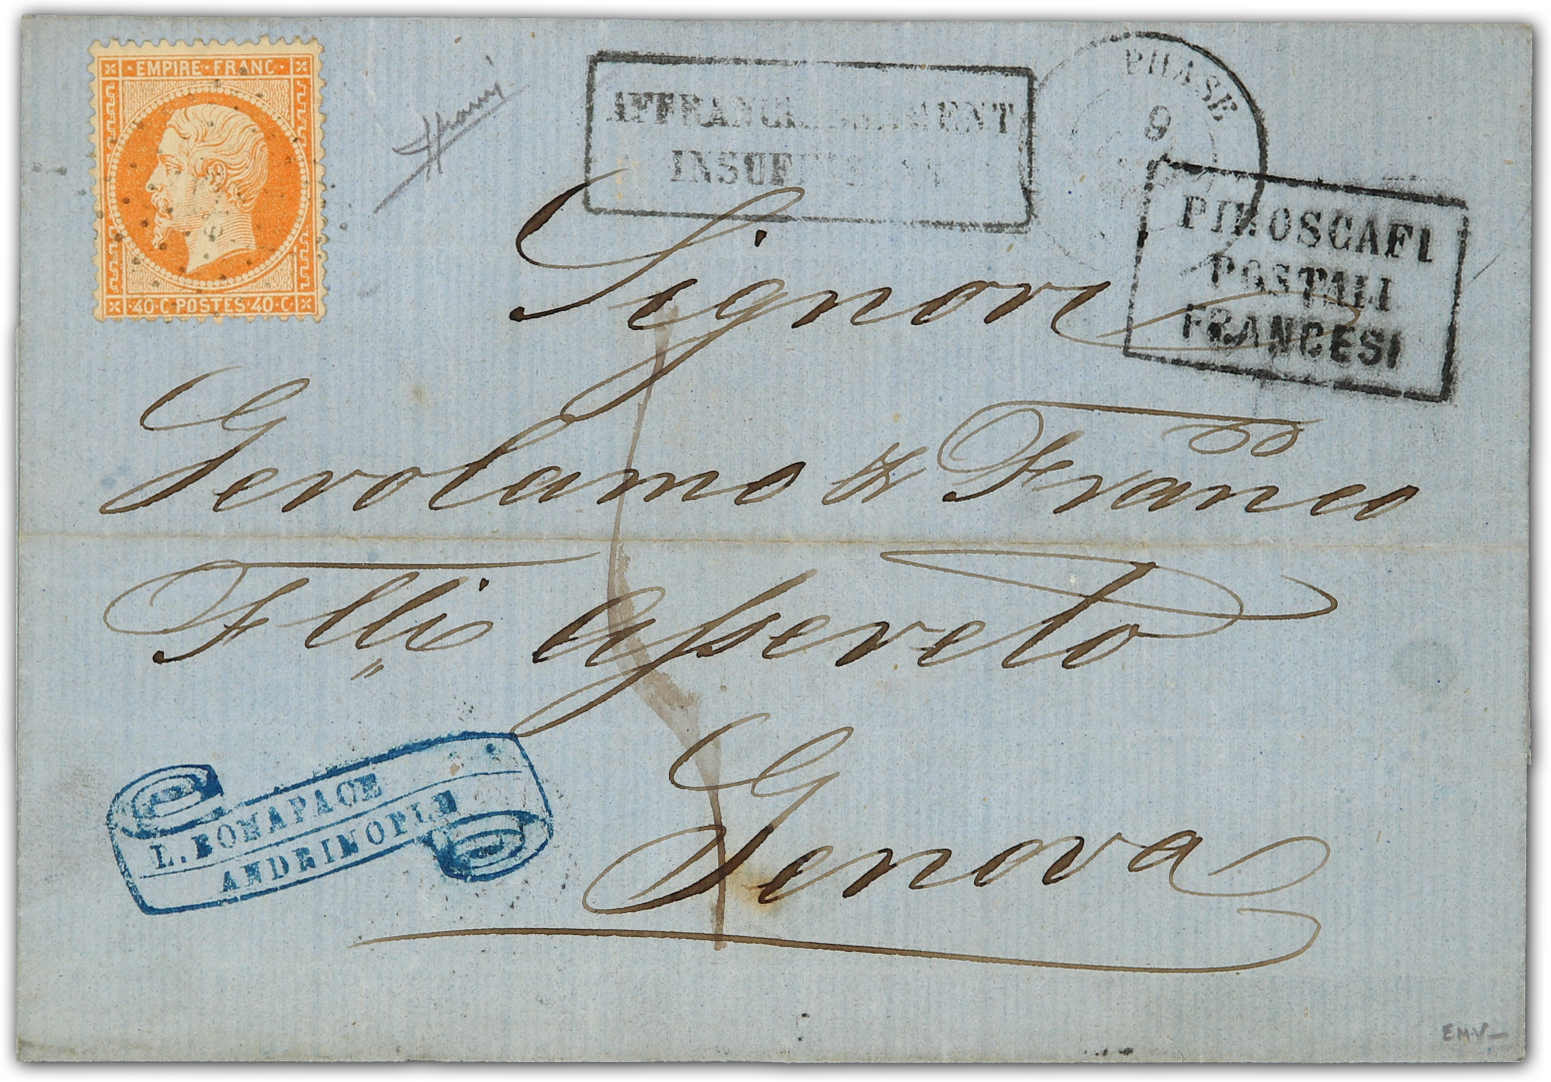 EMPIRE FRANC
40 C POSTES 40 C
AFFRANCHISSEMENT
INSUFFISANT
9
PIROSCAFI
POSTALI
FRANCESI
Signori
Gerolamo & Franco
Flli Assereto
Genova
L. BONAPACE
ANDRINOPLE
EMV